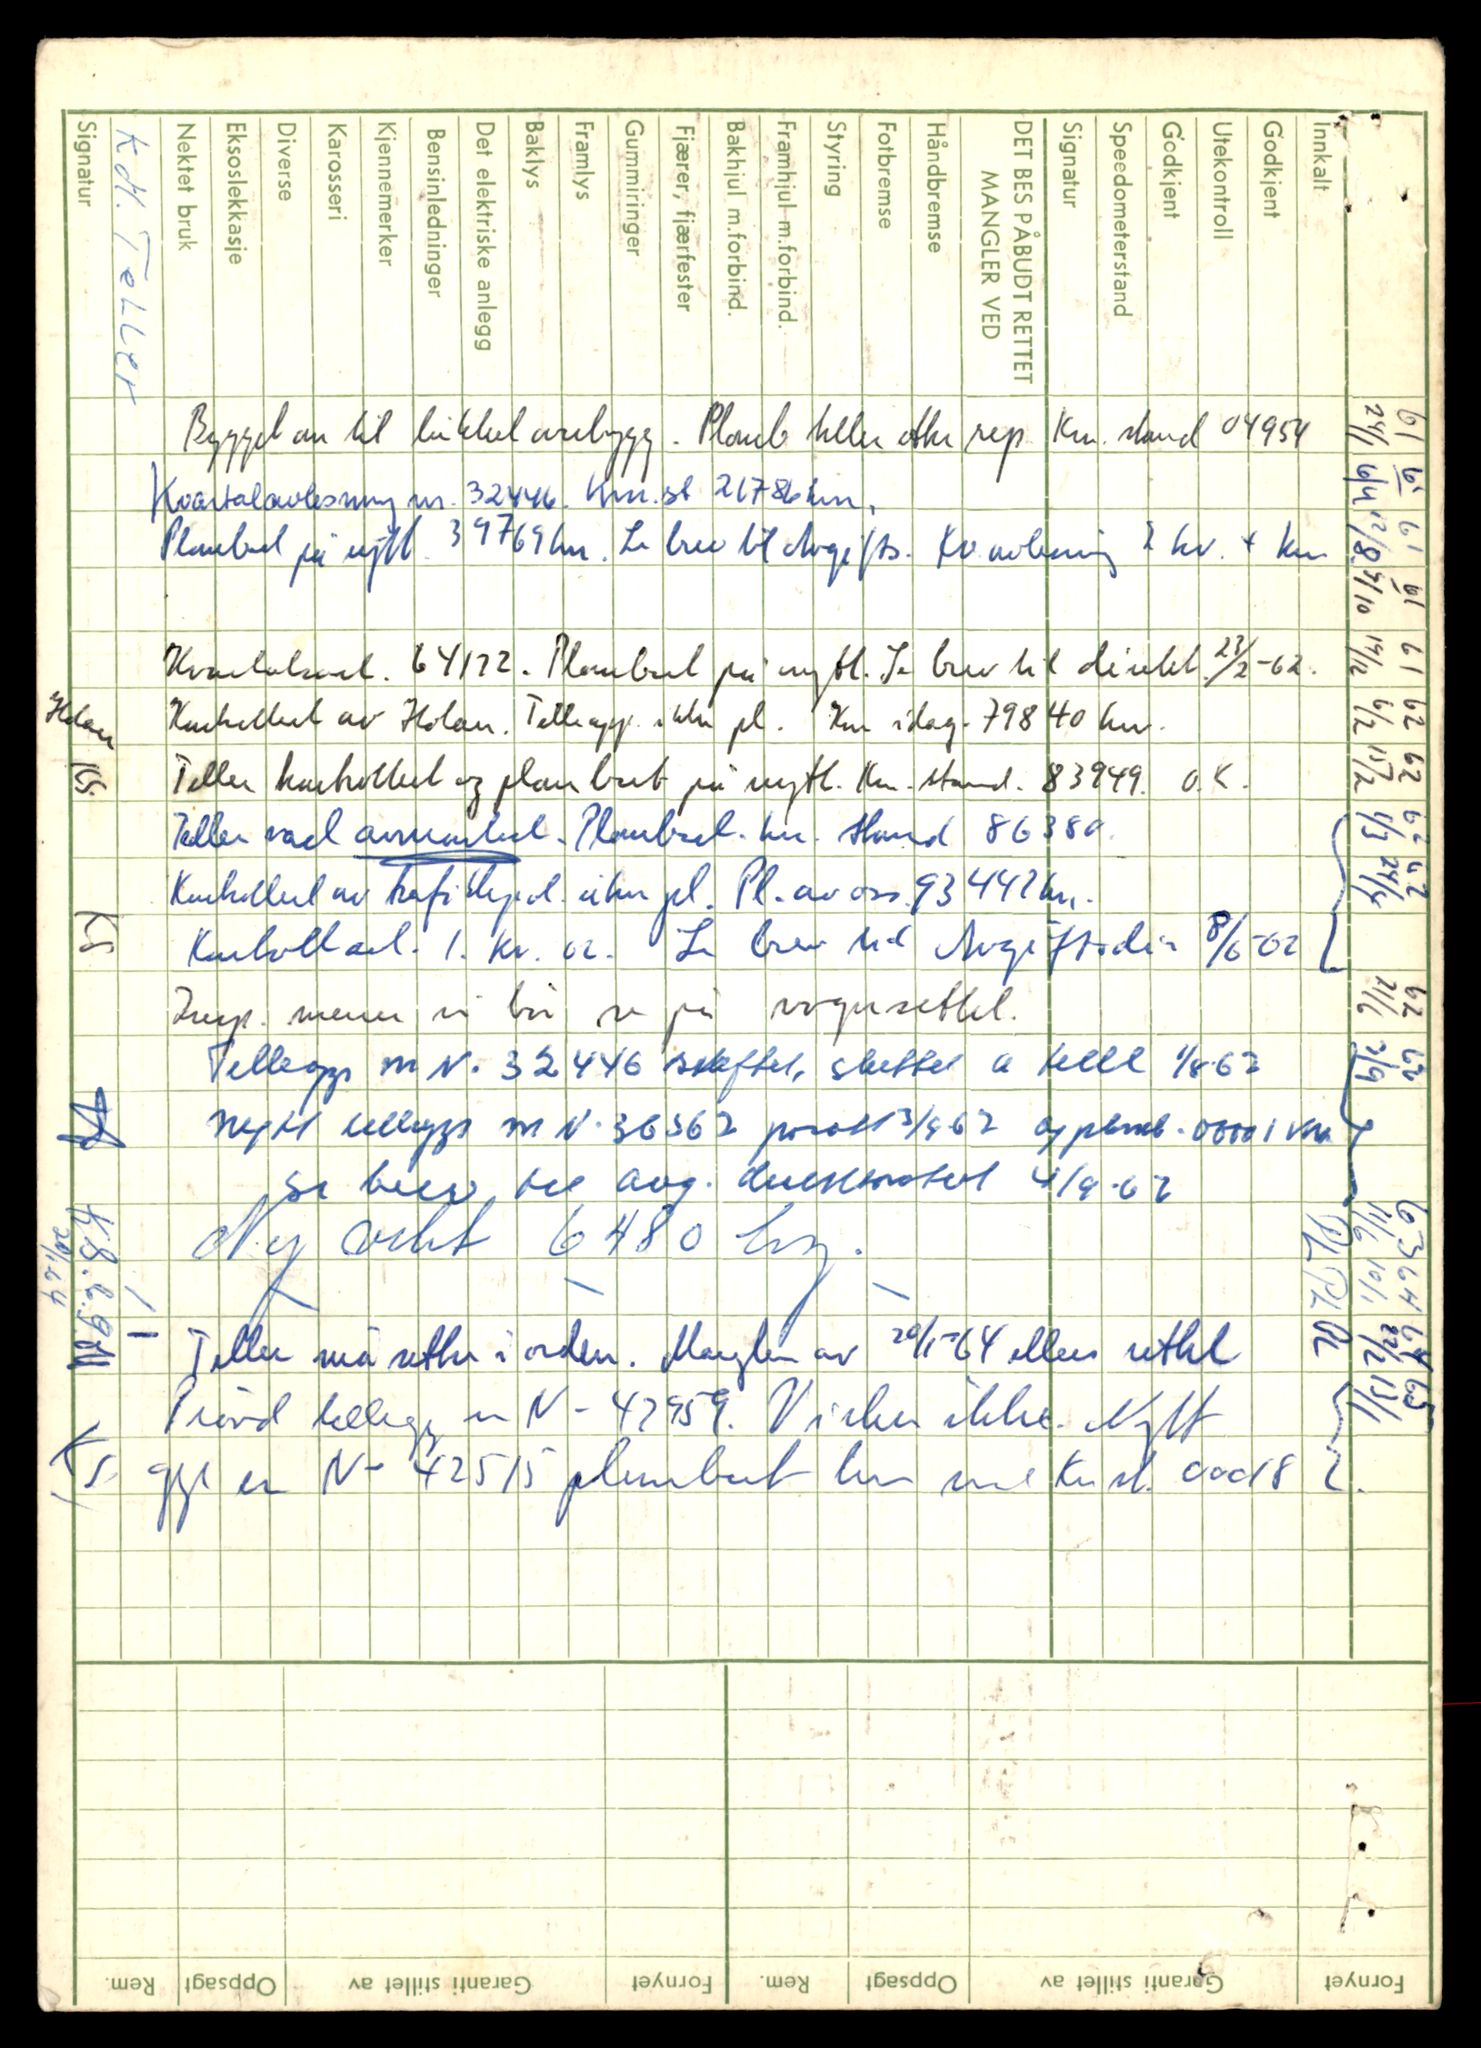 Innkalt
Godkjent
Utekontroll
Godkjent
Speedometerstand
Signatur
DET BES PÅBUDT RETTET
MANGLER VED
Håndbremse
Fotbremse
Styring
Framhjul m.forbind.
Bakhjul m.forbind.
Fjærer, fjærfester
Gummiringer
Framlys
Baklys
Det elektriske anlegg
Bensinledninger
Kjennemerker
Karosseri
Diverse
Eksoslekkasje
Nektet bruk
Kdt. Teller
Signatur
61 61 61 61 61 62 62 62 62
24/1 6/4 12/8 9/10 19/12 6/2 17/2 1/3 24/4
62 62
21/6 3/9
63 64 64 65
11/6 10/1 22/2 13/1
Bygget om til lukket overbygg. Plomb teller etter rep. Km. stand 04954
Kvartalavlesning nr. 32446. Km.st 21786 km.
Plombert på nytt. 39769 km. Se brev til Avgifts. Kv.avlesning 2 kv. + km
64122. Plombert på nytt. Se brev til direkt. 23/2-62.
Kontrollert av Holan. Telleapp. ikke pl. Km idag. 79840 km.
Holan
Teller kontrollert og plombert på nytt. Km. stand. 83949. O.K.
KS.
Teller vart avmontert. Plombert. km. stand 86380.
Kontrollert av ikke pl. Pl. av oss. 93442 km.
1. kv. 62. Se brev til Avgiftsdir 8/6-62
KS
Insp. mener vi bør se på vognsettet.
Telleapp m N. 32446 sluttet a telle 1/8-62
Nytt telleapp m N. 36362 3/9-62 og plomb. 00001 km
Se brev til avg. direktoratet 4/9-62
Ny vekt 6480 kg.
PL PL
K.S.
20/1-64
Teller må settes i orden. Mangler av 20/1-64 ellers rettet
Prøvd telleapp nr N- 42959. Virker ikke. Nytt
app er N- 42515 plombert km med Km st. 00018
KS.
Fornyet
Garanti stillet av
Oppsagt
Rem.
Fornyet
Garanti stillet av
Oppsagt
Rem.